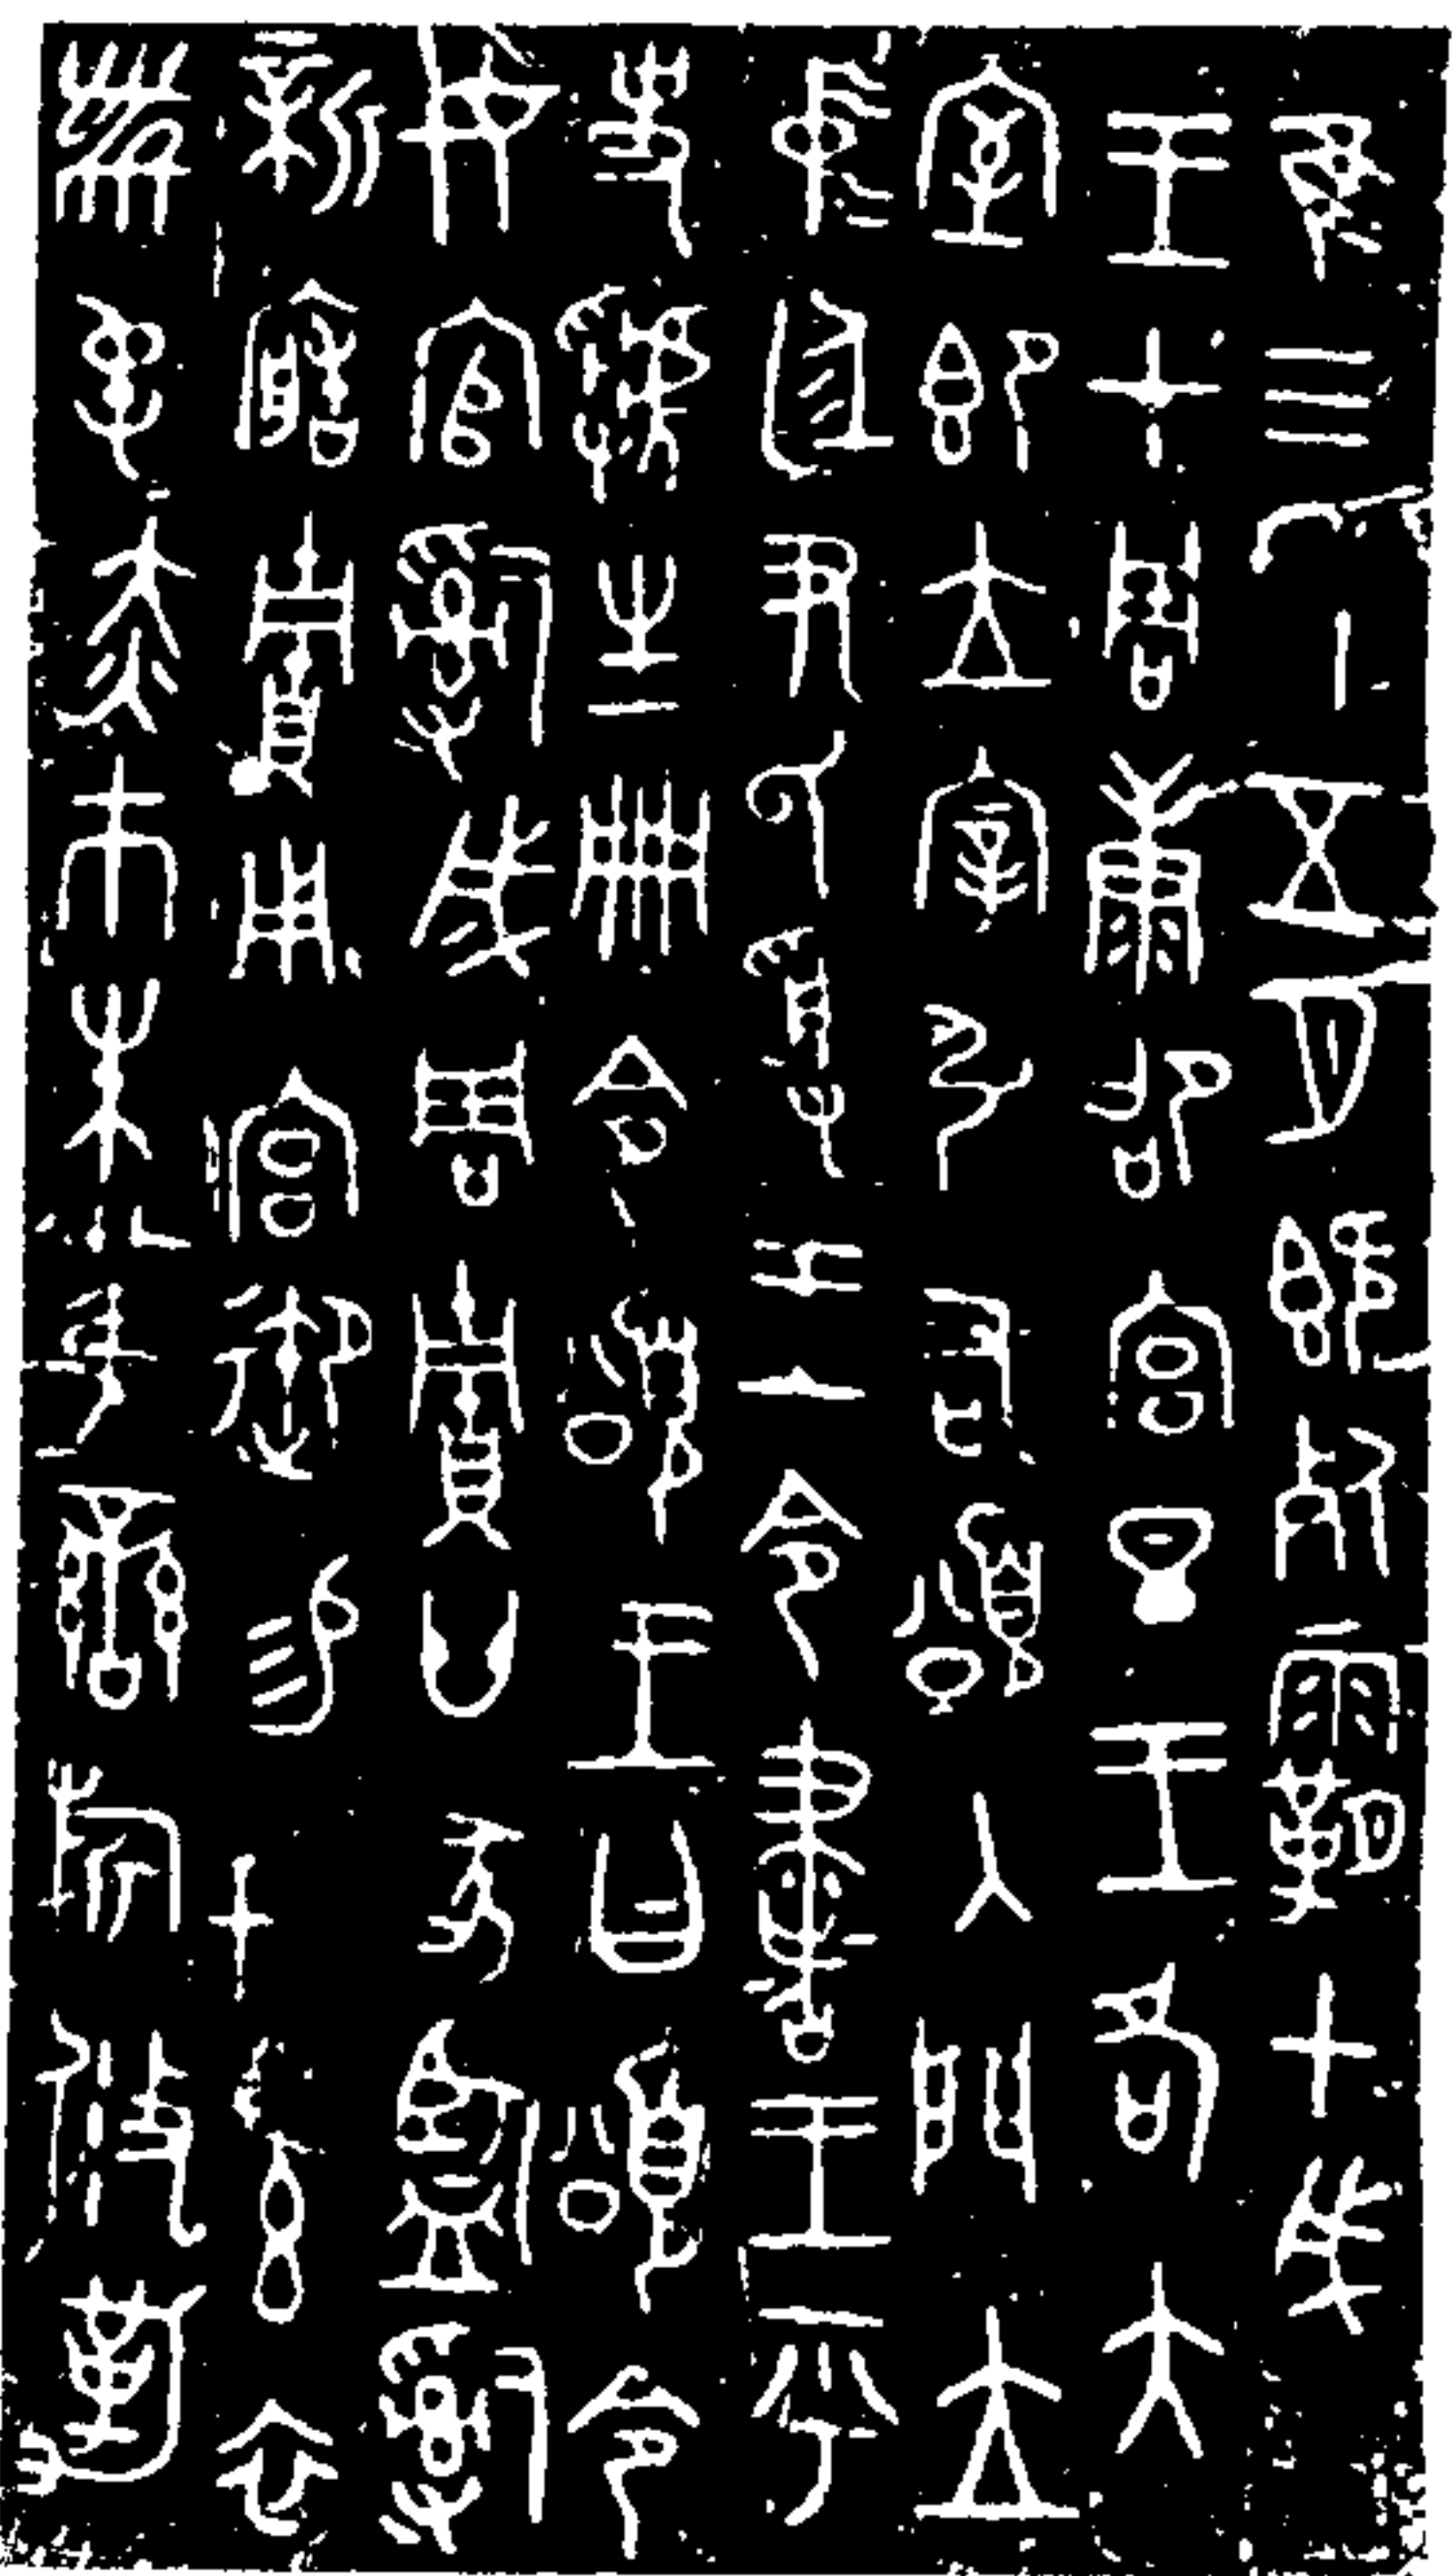 隹三年五月既死霸甲戌
王才周康卲宮旦王各大
室即立宰引右頌入門立
中廷尹氏受王令書王乎
史虢生冊令頌王曰頌令
女官𤔲成周貯廿家監𤔲
新造貯用宮御易女玄衣
黹屯赤巿朱黃䜌旂攸勒